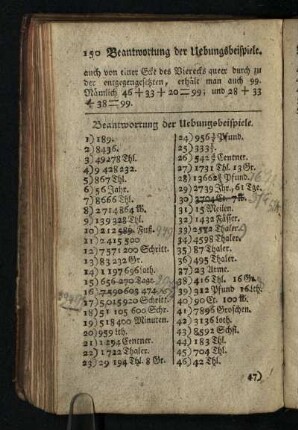 150 Beantwortung der Uebungsbeispiele.
auch von einer Ecke des Vierecks queer durch zu
der entgegengesetzten, erhält man auch 99.
Nämlich 46 + 33 + 20 = 99; und 28 + 33
+ 38 = 99.
Beantwortung der Uebungsbeispiele.
1) 189.
2) 8436.
3) 49278 Thl.
4) 9 428 232.
5) 867 Thl.
6) 56 Jahr.
7) 8666 Thl.
8) 2714864
9) 139328 Thl.
10) 212 Fuß.
11) 2415 500
12) 7571 200 Schritt.
13) 83 232 Gr.
14) 1 197 696 loth.
15) 656 270 Tage.
16)
17) 5015920 Schritt.
18) 51 105 600 Schr.
19) 518400 Minuten.
20) 959 lth.
21) 1 294 Centner.
22) 1722 Thaler.
23) 29 194 Thl. 8 Gr.
24) 956 Pfund.
25) 333
26) 542 Centner.
27) 1731 Thl. 13 Gr.
28) 13662 Pfund.
29) 2739 Jhr, 61 Tge.
30)
31) 15 Meilen.
32) 1432 Fässer.
33) Thaler.
34) 4598 Thaler.
35) 87 Thaler.
36) 495 Thaler.
37) 23 Arme.
38) 416 Thl. 16 Gr.
39) 312 Pfund 16 lth.
40) 90 Ct. 100
41) 7896 Groschen.
42) 3136 loth.
43) 8592 Schfl.
44) 183 Thl.
45) 704 Thl.
46) 42 Thl.
47)